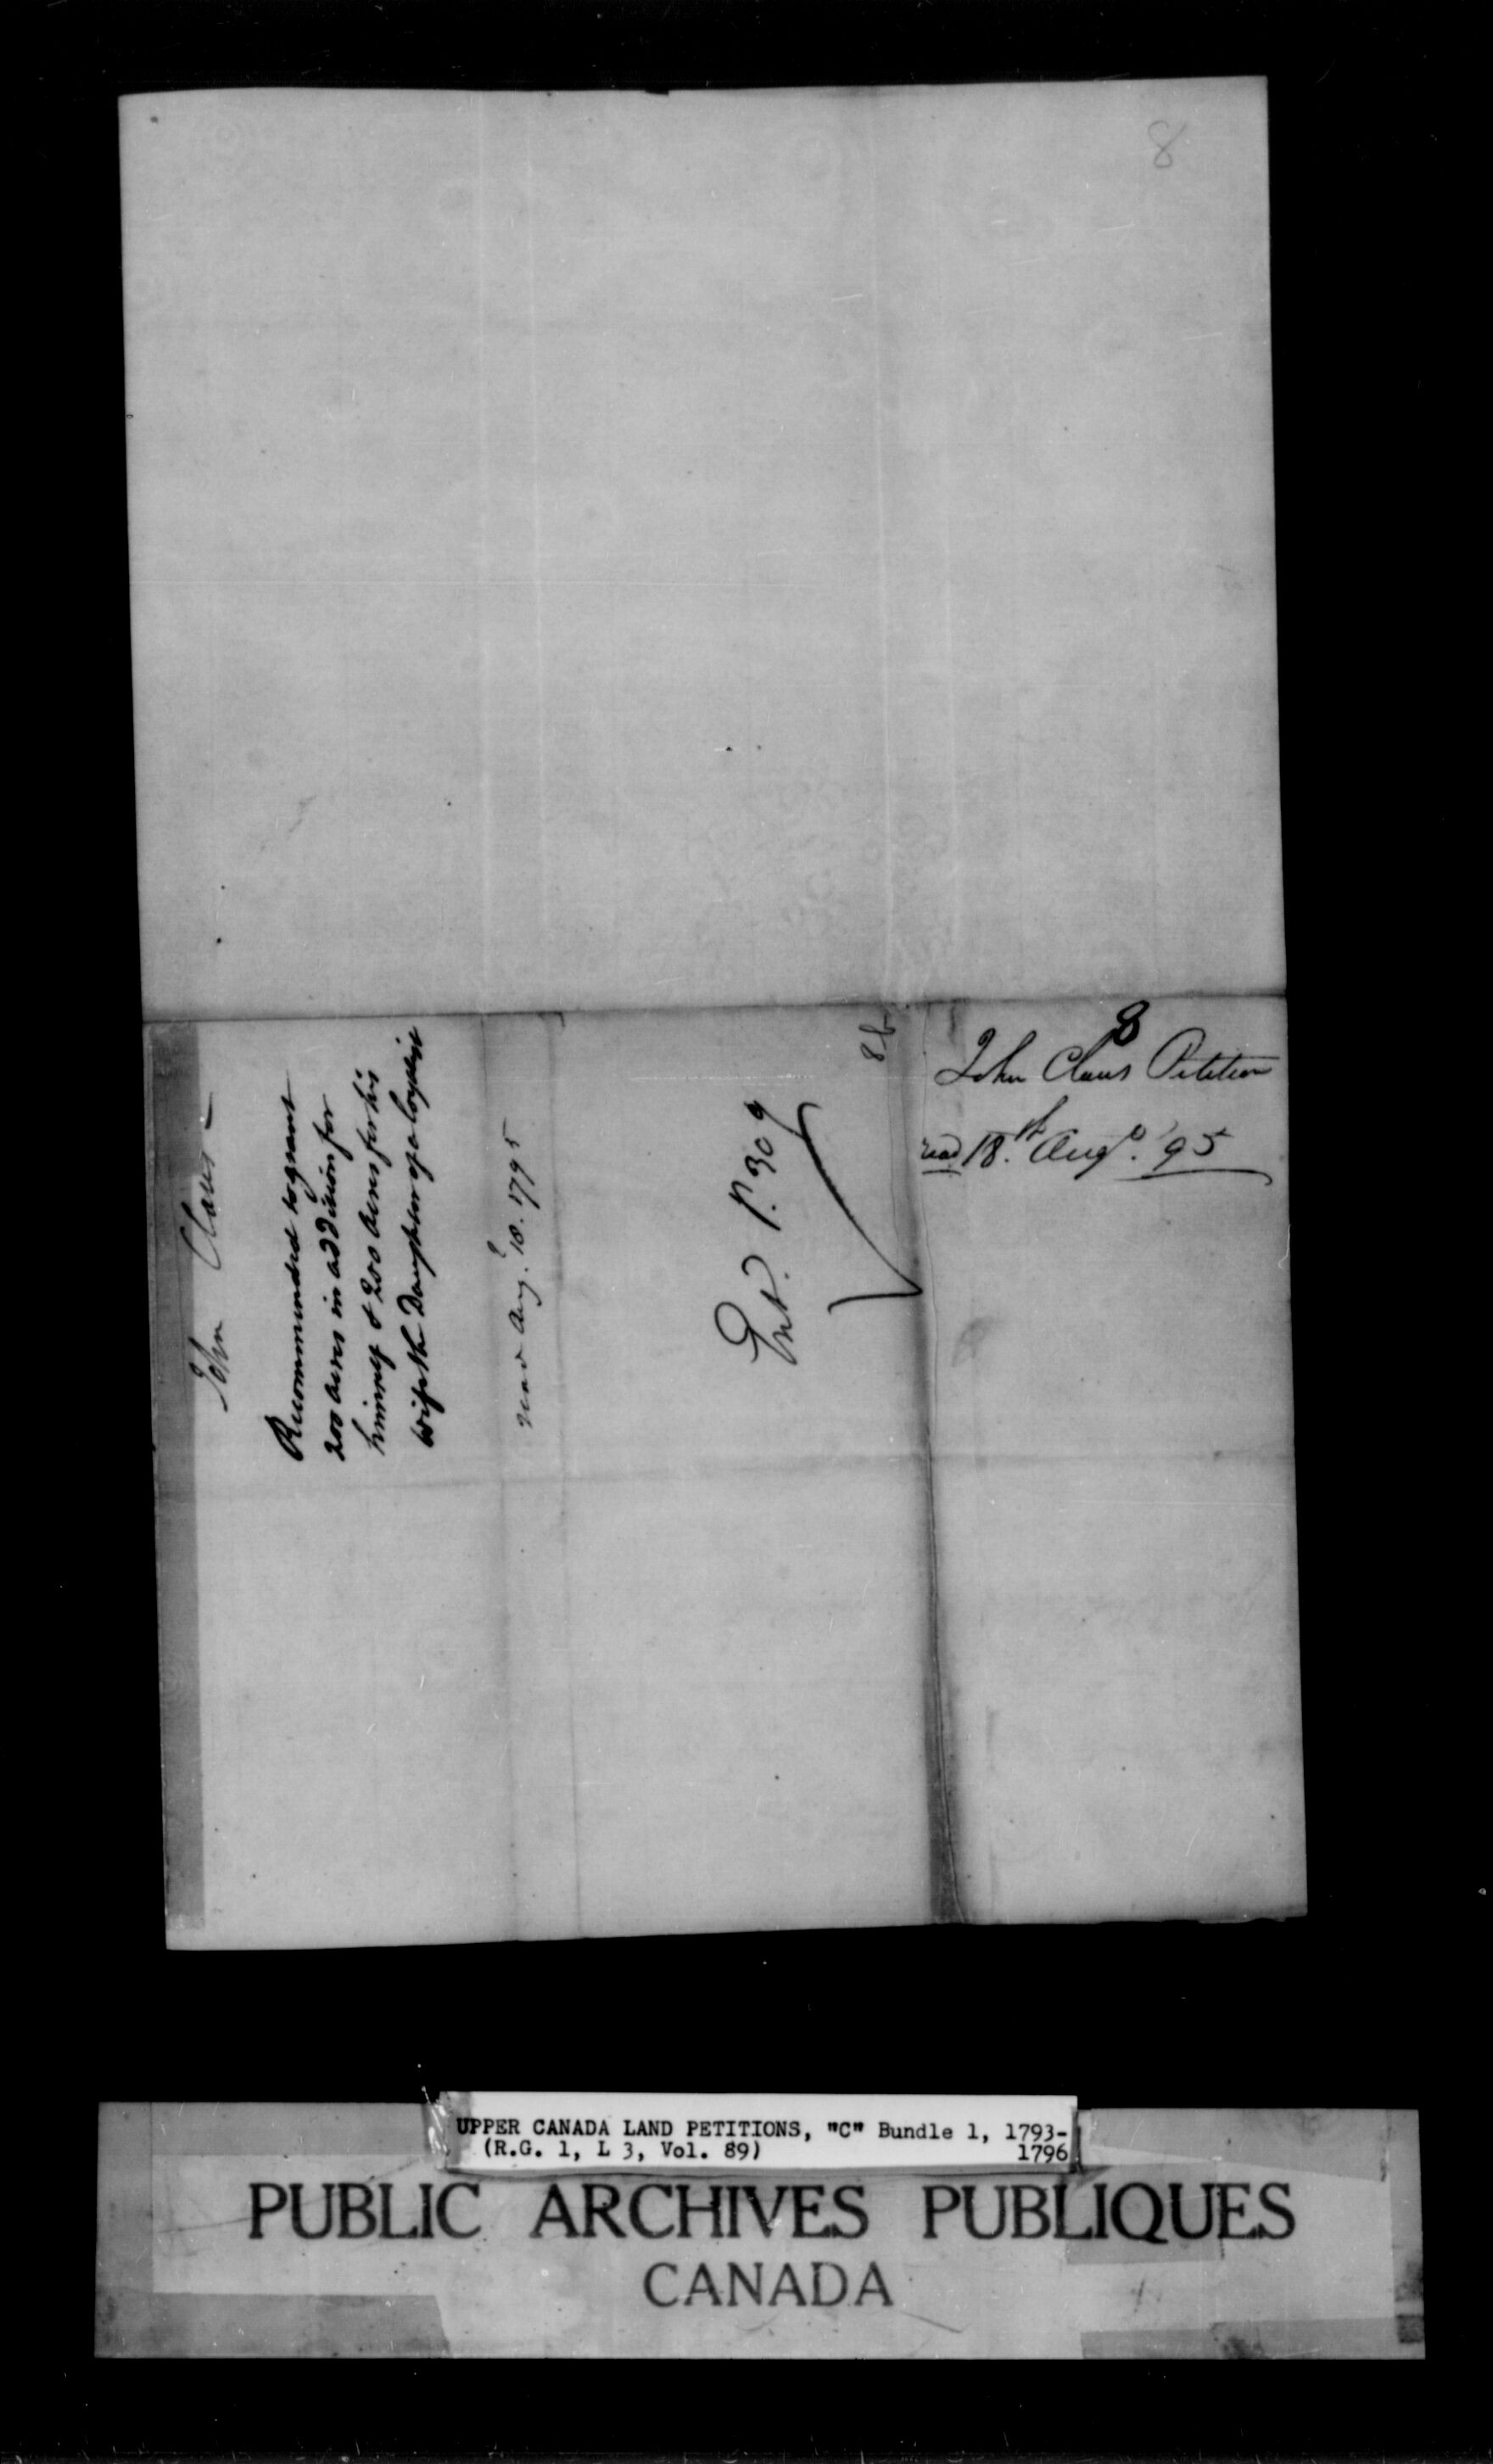 8
John Claus
Recommended to grant
200 acres in addition for
himself & 200 acres for his
wife the Daughter of a loyalist
read Aug. 18. 1795
Ent. P. 309
8b
8
John Claus Petition
read 18th Augt. '95
UPPER CANADA LAND PETITIONS, "C" Bundle 1, 1793-
(R.G. 1, L 3, Vol. 89) 1796
PUBLIC ARCHIVES PUBLIQUES
CANADA